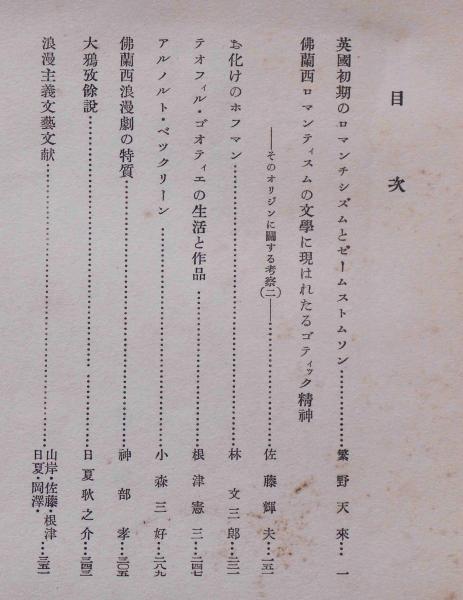 目次
英國初期のロマンチシズムとゼームストムソン……………繁野天來…一
佛蘭西ロマンティスムの文學に現はれたるゴティック精神
――そのオリジンに關する考察(二)――……………佐藤輝夫…一五一
お化けのホフマン……………林文三郎…二三一
テオフィル・ゴオティエの生活と作品……………根津憲三…二四七
アルノルト・ベツクリーン……………小森三好…二八九
佛蘭西浪漫劇の特質……………神部孝…三〇五
大鴉攷餘說……………日夏耿之介…三四三
浪漫主義文藝文献……………山岸・佐藤・根津・日夏・岡澤・…三五一